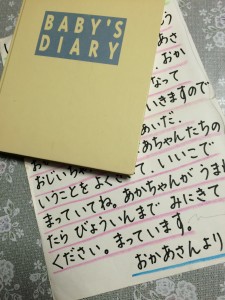 BABY'S
DIARY
う
あさ
おか
なって
いきますので
あいだ.
おじいち
あちゃんたちの
いうことを よく
て, いいこで
まっていてね。あかちゃんが うまれ
たら びょういんまで みにきて
ください。まっています。
おかあさんより